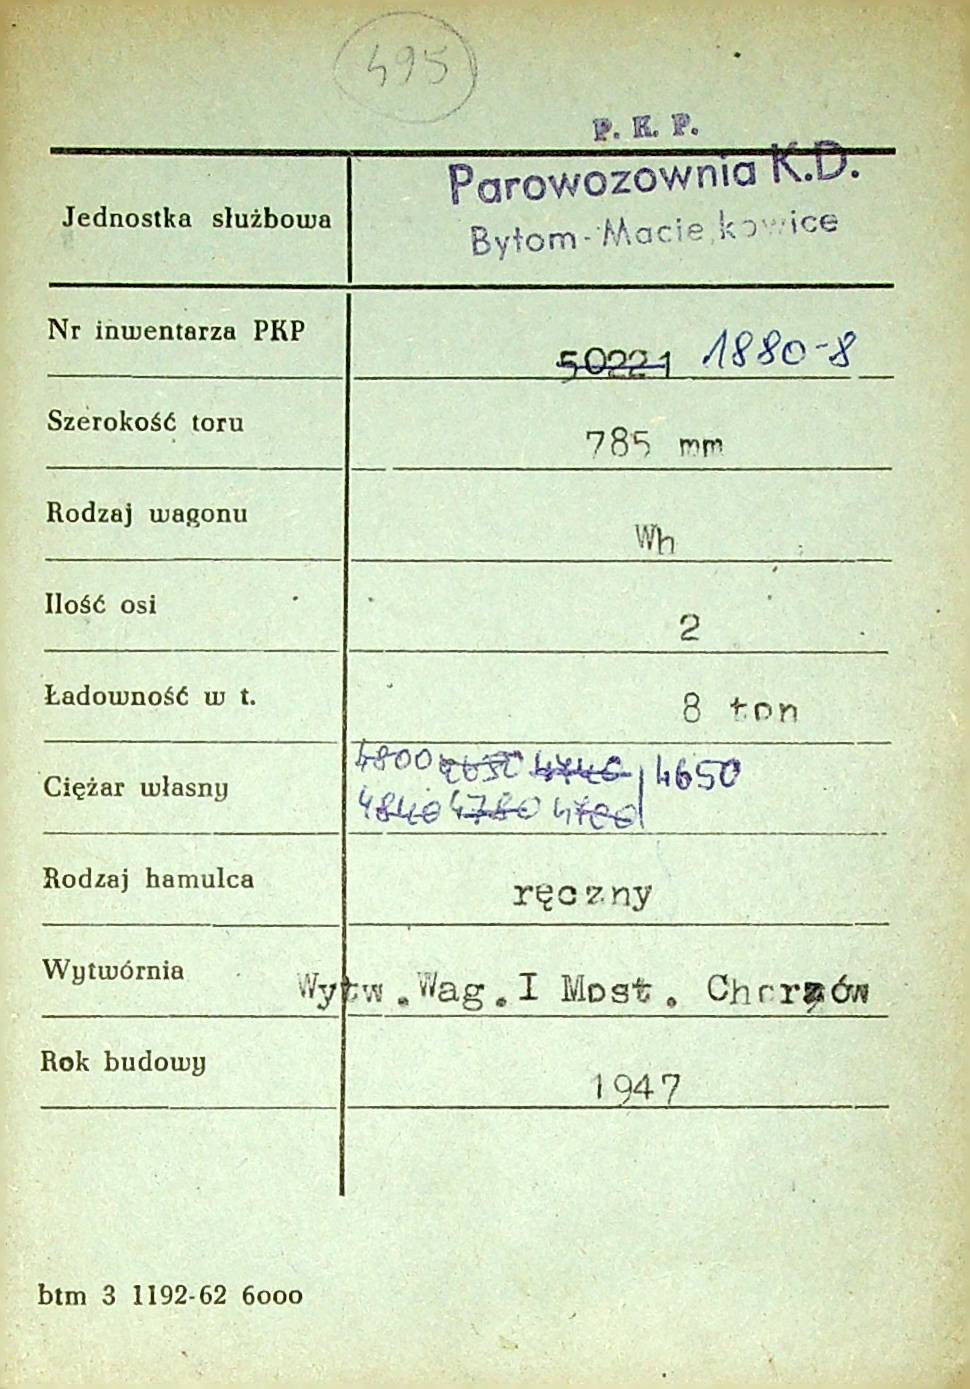 495
P. K. P.
Parowozownia K.D.
Jednostka służbowa
Bytom-Maciejkowice
Nr inwentarza PKP 50221 1880-8
Szerokość toru 785 mm
Rodzaj wagonu Wh
Ilość osi 2
Ładowność w t. 8 ton
4800 4650 4740 4650
Ciężar własny
4840 4780 4700
Rodzaj hamulca ręczny
Wytwórnia Wytw.Wag.I Most. Chorzów
Rok budowy 1947
btm 3 1192-62 6000